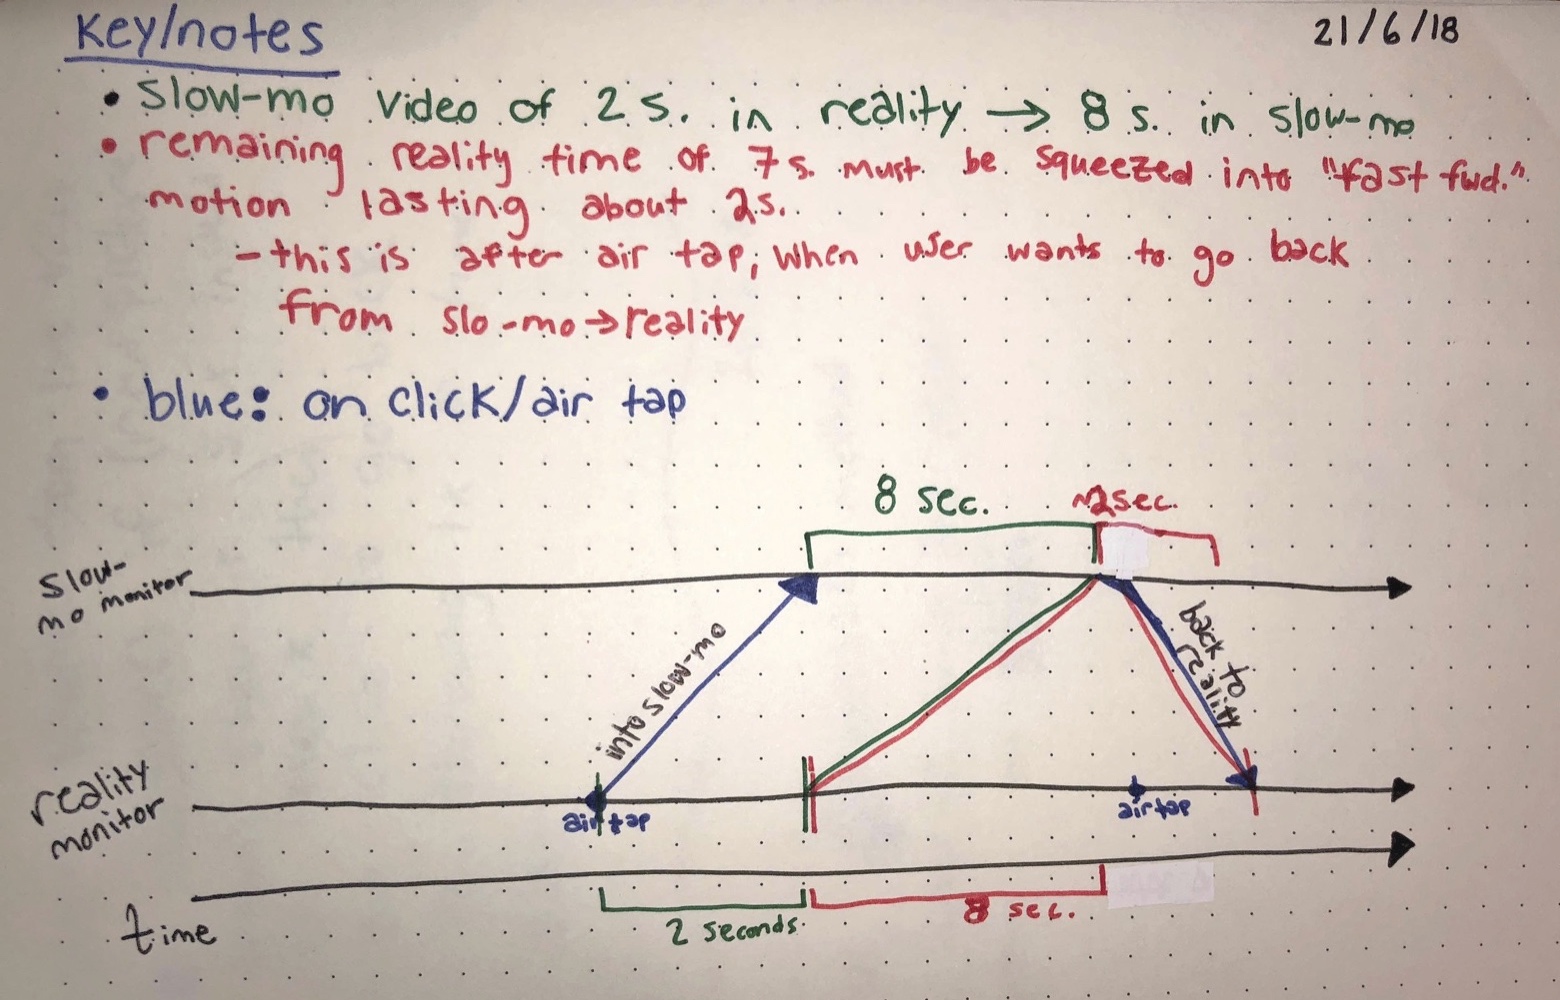 Key/notes
21/6/18
• slow-mo video of 2 s. in reality → 8 s. in slow-mo
• remaining reality time of 7 s. must be squeezed into "fast fwd."
motion lasting about 2s.
- this is after air tap, when user wants to go back
from slo-mo → reality
• blue: on click/air tap
8 sec.
~2sec.
slow-
mo monitor
into slow-mo
back to
reality
reality
monitor
air tap
air tap
2 seconds
8 sec.
time